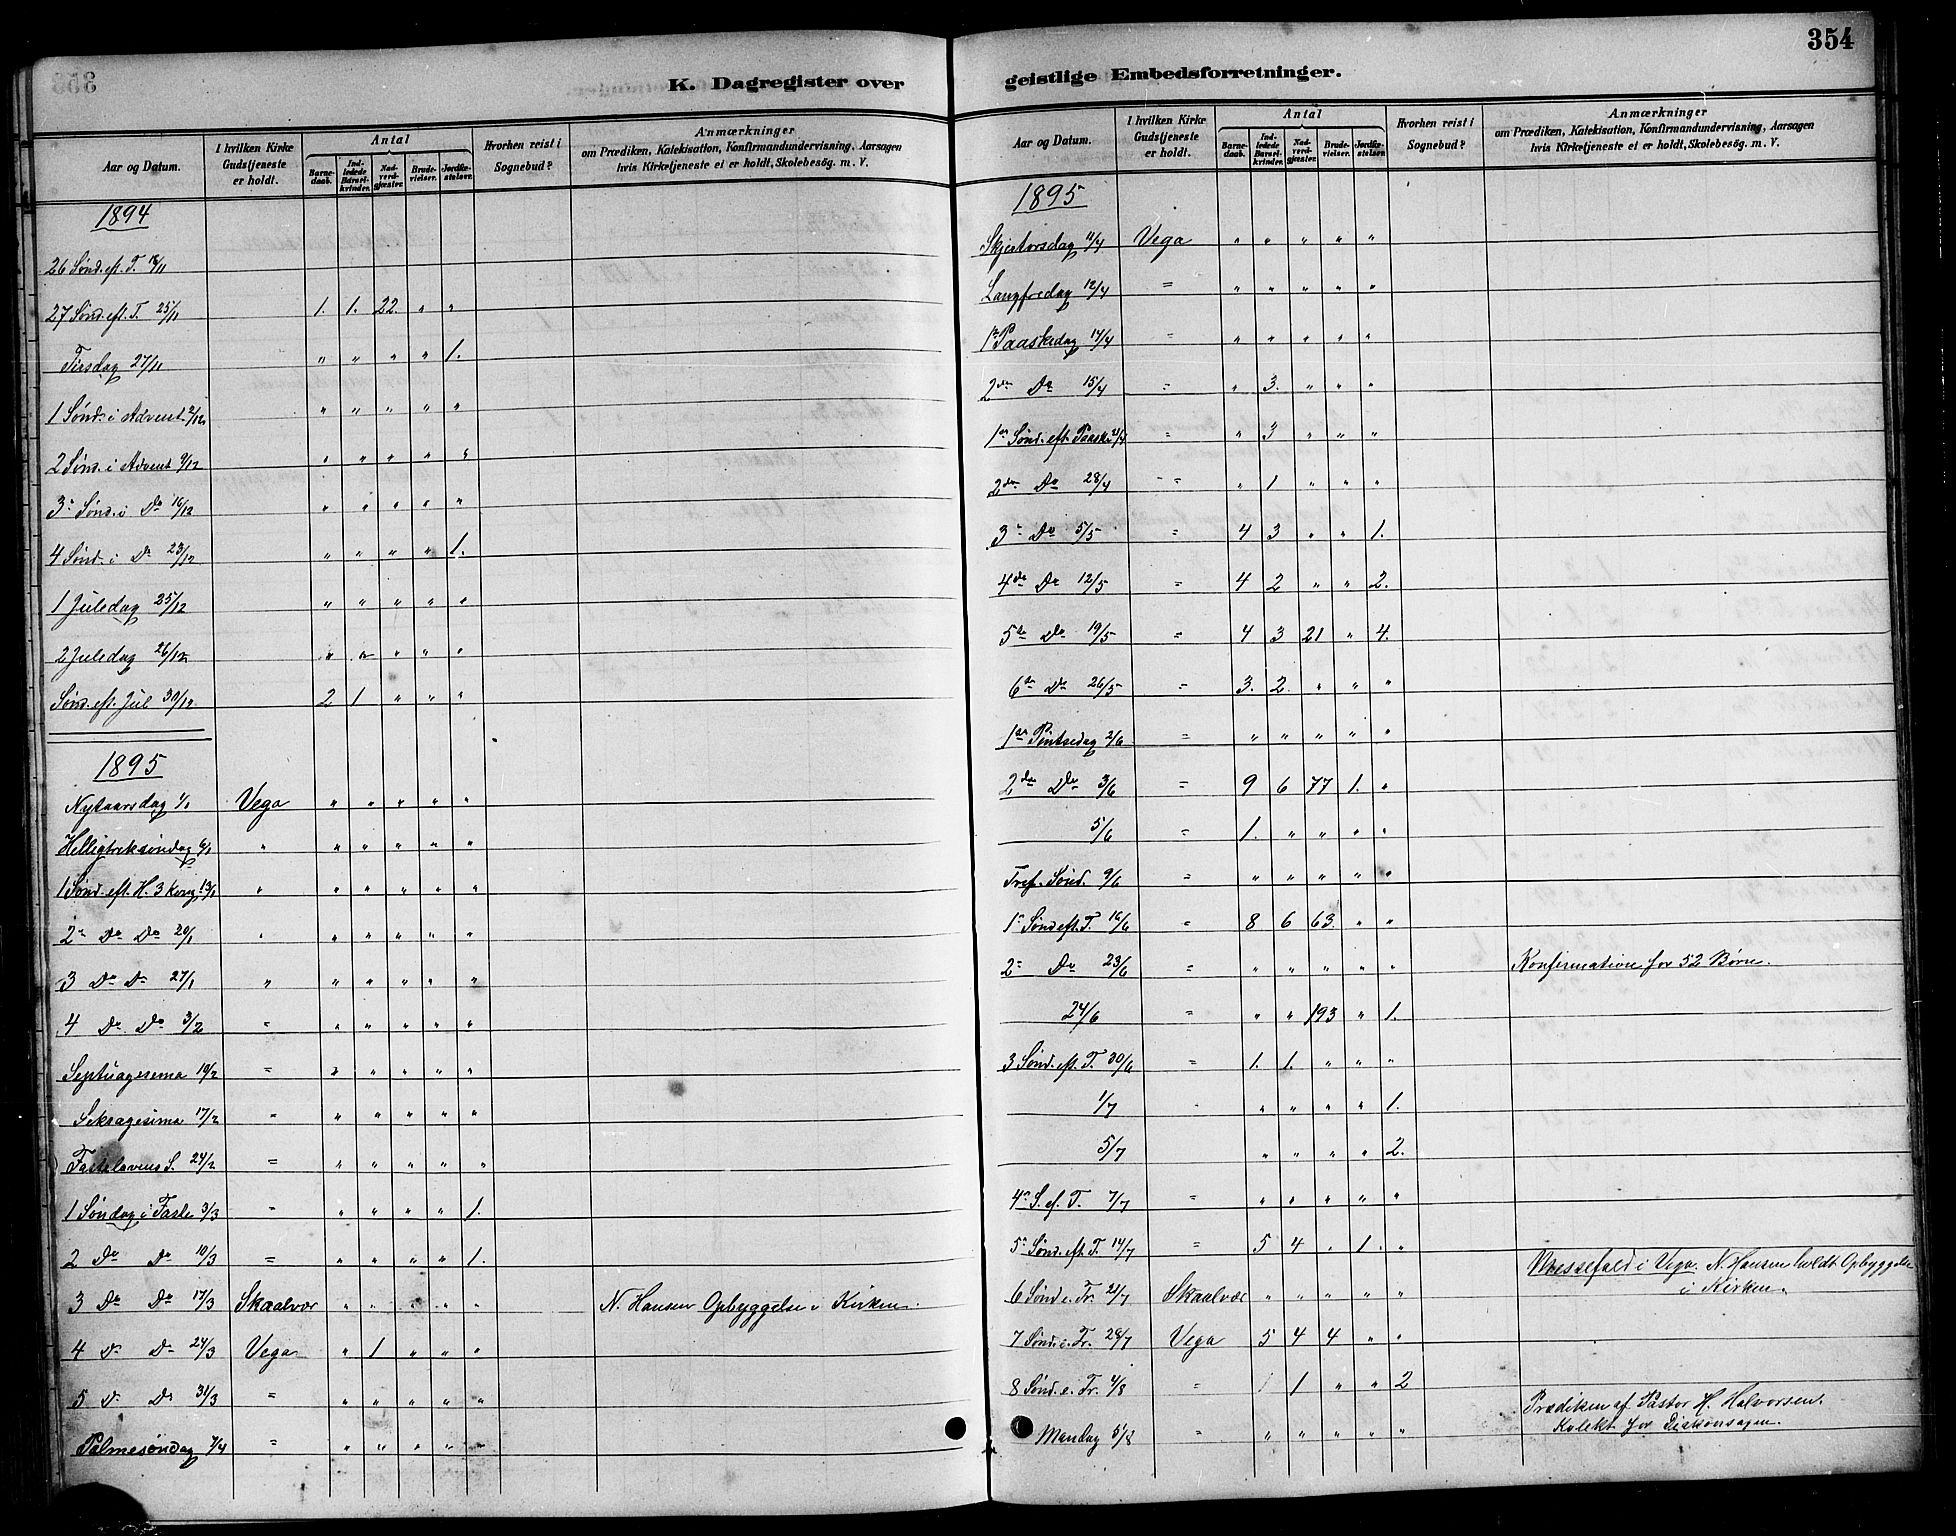 354
K. Dagregister over
geistlige Embedsforretninger.
Aar og Datum.
I hvilken Kirke Gudstjeneste er holdt.
Antal
Barnedaab.
Indledede Barselkvinder.
Nadverdgjæster.
Brudevielser.
Jordfæstelser.
Hvorhen reist i Sognebud?
Anmærkninger
om Prædiken, Katekisation, Konfirmandundervisning, Aarsagen
hvis Kirketjeneste ei er holdt, Skolebesøg. m. V.
1894
26 Sønd. eft. T. 18/11
27 Sønd. eft. T. 25/11 1. 1. 22. " "
Tirsdag 27/11 " " " " 1.
1 Sønd. i Advent 2/12 " " " " "
2 Sønd. i Advent 9/12 " " " " "
3 Sønd. i Do 16/12 " " " " "
4 Sønd. i Do 23/12 " " " " 1.
1 Juledag 25/12 " " " " "
2 Juledag 26/12 " " " " "
Sønd. eft. Jul 30/12 2 1 " " "
1895
Nytaarsdag 1/1 Vega " " " " "
Helligtreksøndag 6/1 " " " " " "
1 Sønd. eft. H. 3 Kong. 13/1 " " " " " "
2 Do Do 20/1 " " " " " "
3 Do Do 27/1 " " " " " "
4 Do Do 3/2 = " " " " "
Septuagesema 10/2 = " " " " "
Seksagesima 17/2 = " " " " "
Fastelavens S. 24/2 = " " " " "
1 Søndag i Faste 3/3 = " " " " 1.
2 Do Do 10/3 = " " " " 1.
3 Do Do 17/3 Skaalvær " " " " " N. Hansen Opbyggelse i Kirken.
4 Do Do 24/3 Vega " 1 " " "
5 Do Do 31/3 = " " " " "
Palmesøndag 7/4 = " " " " "
Aar og Datum.
I hvilken Kirke Gudstjeneste er holdt.
Antal
Barnedaab.
Indledede Barselkvinder.
Nadverdgjæster.
Brudevielser.
Jordfæstelser.
Hvorhen reist i Sognebud?
Anmærkninger
om Prædiken, Katekisation, Konfirmandundervisning, Aarsagen
hvis Kirketjeneste ei er holdt, Skolebesøg. m. V.
1895
Skjertorsdag 11/4 Vega " " " " "
Langfredag 12/4 = " " " " "
1 Paaskedag 14/4 = " " " " "
2den Do 15/4 = " 3. " " "
1ste Sønd. eft. Paaske 21/4 = " 3 " " "
2den Do 28/4 = " 1 " " "
3 Do 5/5 = 4 3 " " 1.
4de Do 12/5 = 4 2 " " 2.
5te Do 19/5 = 4 3 21 " 4.
6te Do 26/5 = 3. 2. " " "
1ste Pintsedag 2/6 = " " " " "
2den Do 3/6 = 9 6 77 1. "
5/6 = 1. " " " "
Tref. Sønd. 9/6 = " " " " "
1 Sønd eft. T. 16/6 = 8 6 63. " "
2 Do 23/6 = " " " " " Konfirmation for 52 Børn.
24/6 = " " 193 " 1.
3 Sønd. eft. T. 30/6 = 1. 1. " " "
1/7 " " " " " 1.
5/7 " " " " 2.
4 S. ef. T. 7/7 = " " " " "
5 Sønd. eft. T. 14/7 = 5 4 " 1. "
6 Sønd e. Tr. 21/7 Skaalvær " " " " " Messefald i Vega. N. Hansen holdt Opbyggelse
i Kirken.
7 Sønd. e. Tr. 28/7 Vega 5 4 4 " "
8 Sønd. e. Tr. 4/8 = 1 1 " " 2
Mandag 5/8 = " " " " " Prædiken af Pastor H. Halvorsen.
Kolekt for Diakonsagen.